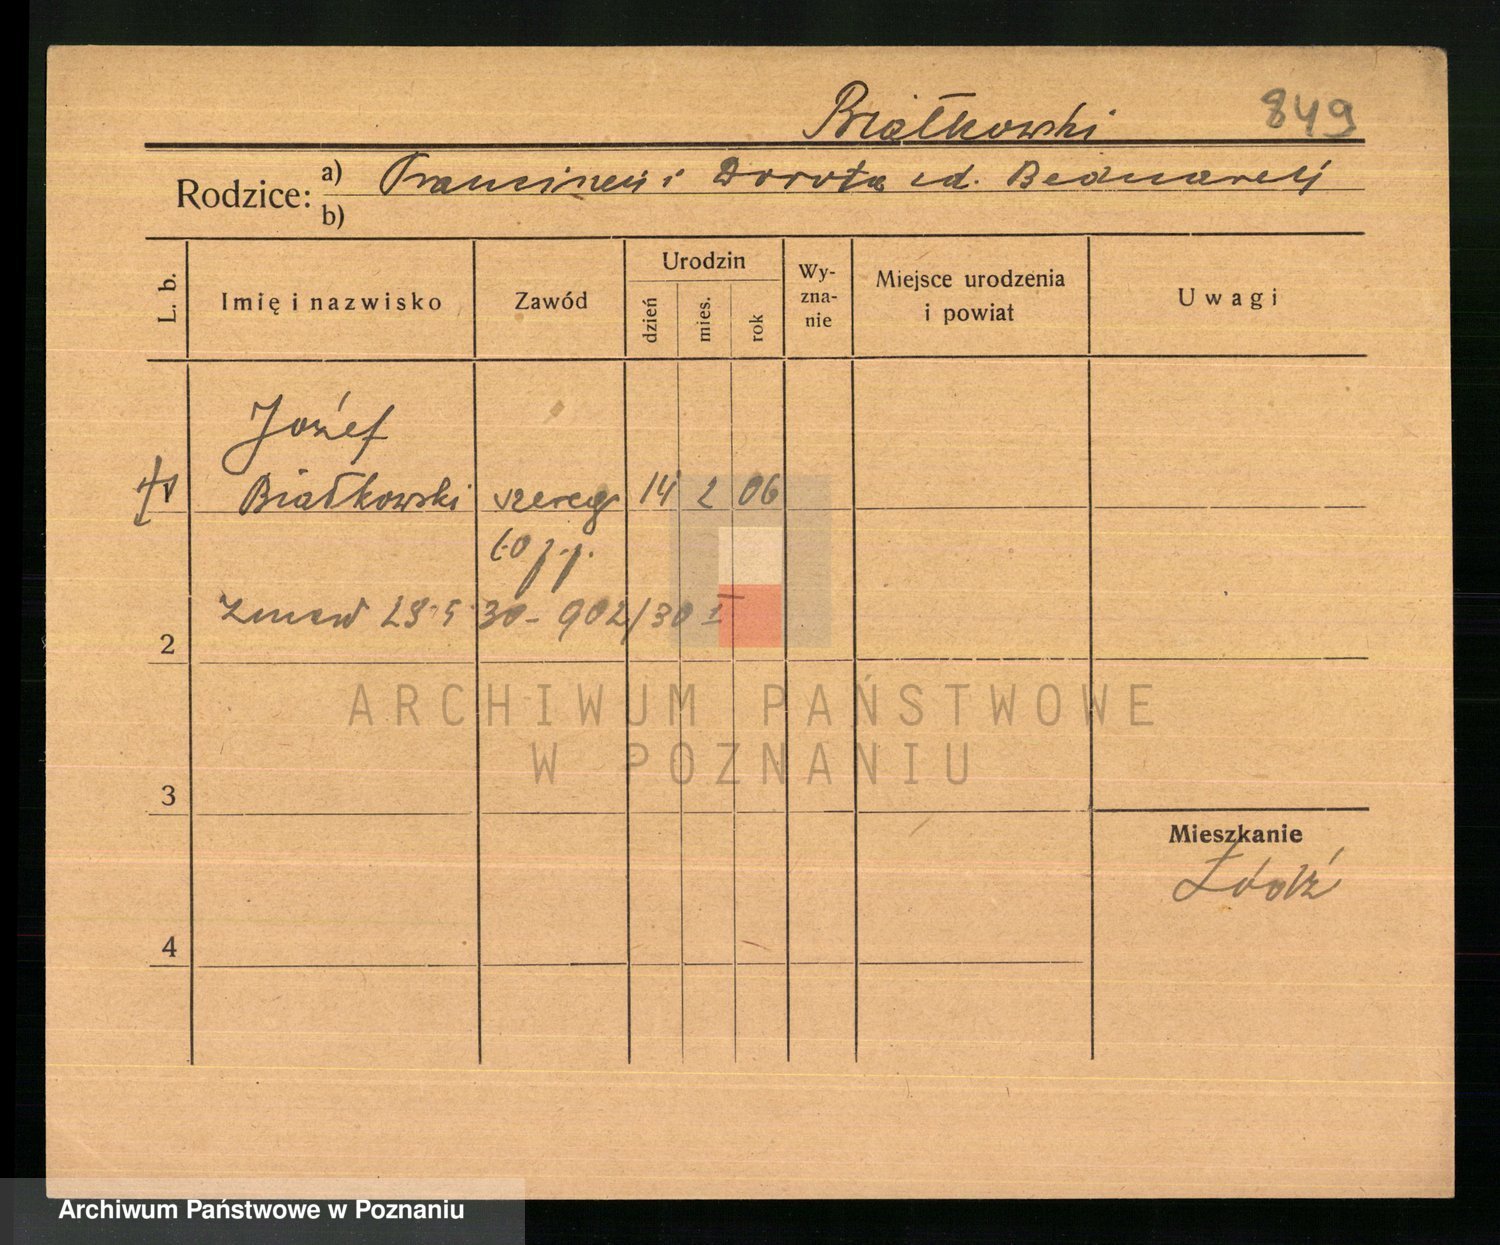 Białkowski 849
Rodzice: a) Franciszek i Dorota z d. Bednarek
b)
L. b. Imię i nazwisko Zawód Urodzin dzień mies. rok Wy-zna-nie Miejsce urodzenia i powiat Uwagi
Józef
Białkowski szereg 14 2 06
60 p.p.
2 zmarł 29.5.30 - 902/30 I
ARCHIWUM PAŃSTWOWE
W POZNANIU
3
Mieszkanie
Łódź
4
Archiwum Państwowe w Poznaniu